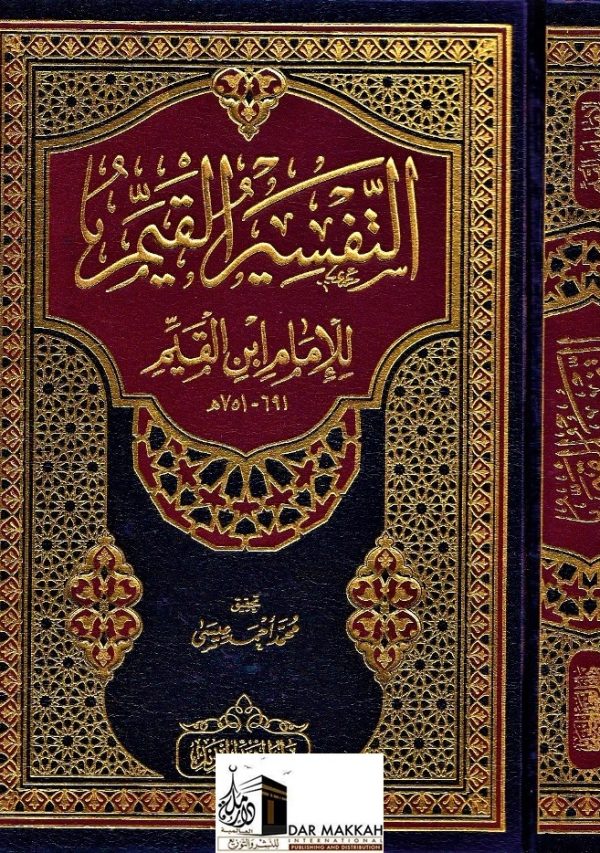 التَّفْسِيرُ القَيِّمُ
لِلإِمَامِ ابْنِ القَيِّمِ
٦٩١ - ٧٥١هـ
تحقيق
محمد أحمد عيسى
دار مكة
العالمية
للنشر والتوزيع
DAR MAKKAH
INTERNATIONAL
PUBLISHING AND DISTRIBUTION